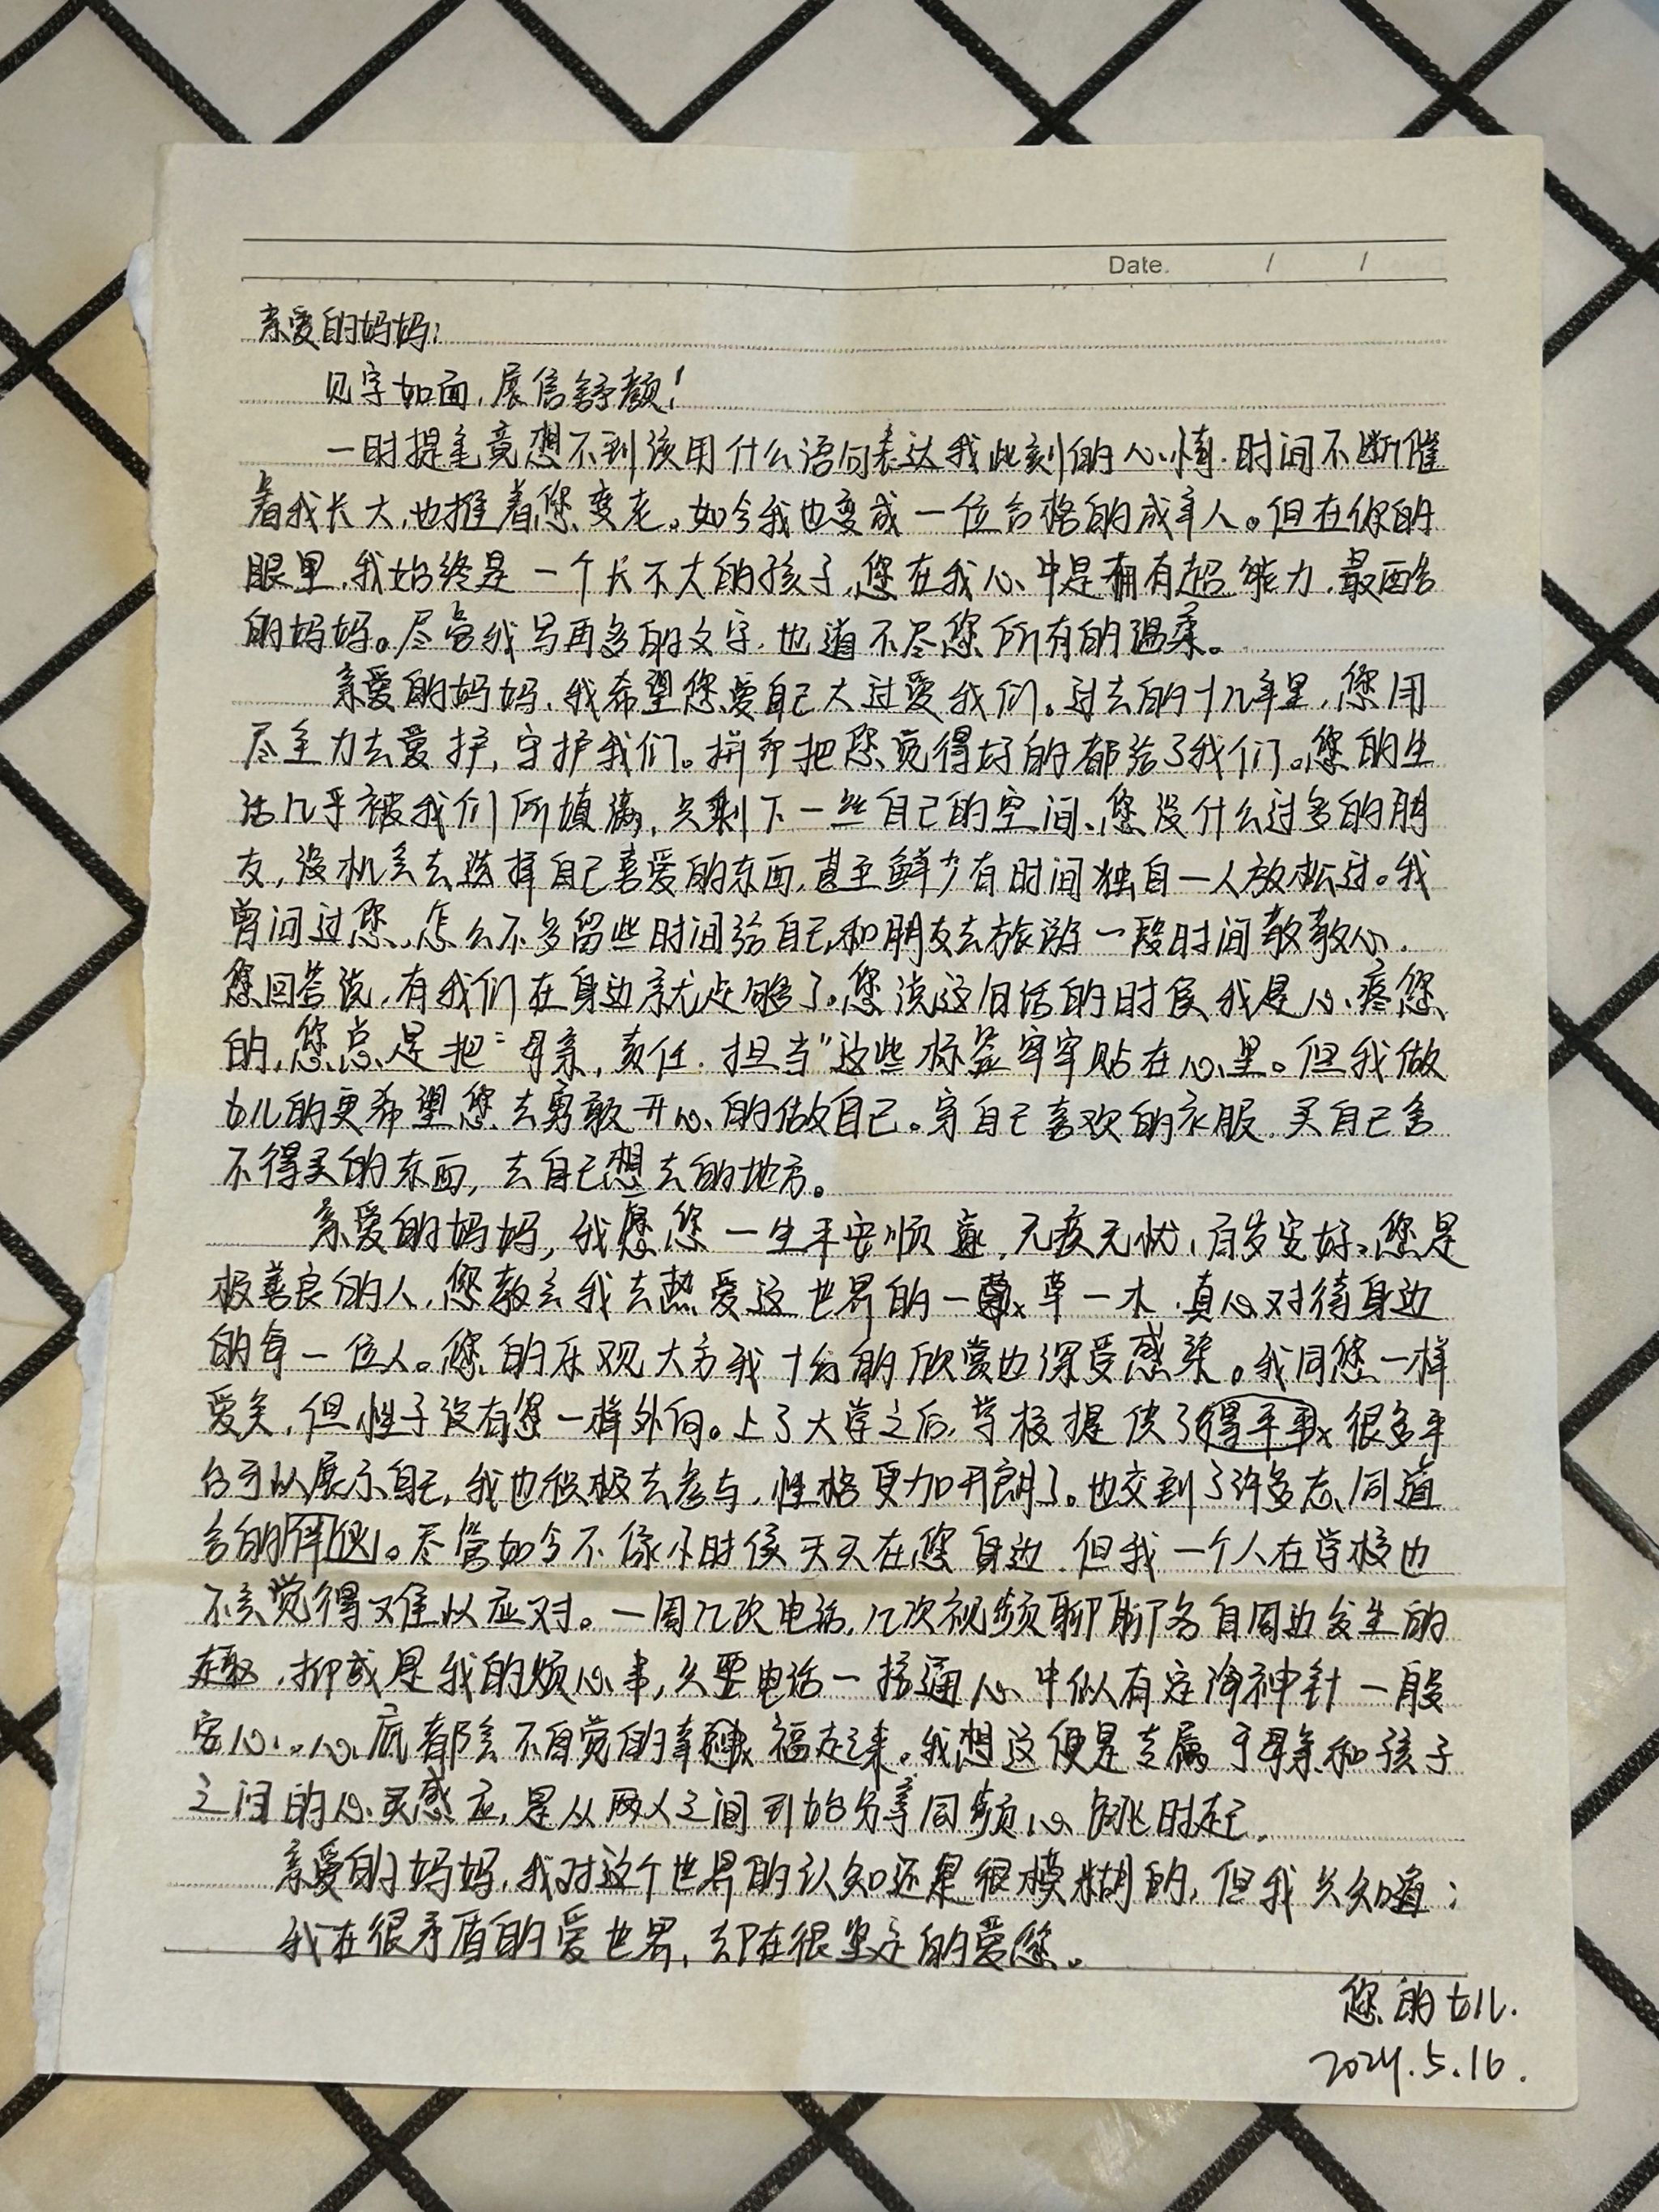 Date. / /
亲爱的妈妈:
见字如面,展信舒颜!
一时提笔竟想不到该用什么语句表达我此刻的心情.时间不断催
着我长大,也推着您变老。如今我也变成一位合格的成年人。但在你的
眼里,我始终是一个长不大的孩子,您在我心中是拥有超能力,最酷
的妈妈。尽管我写再多的文字,也道不尽您所有的温柔。
亲爱的妈妈,我希望您爱自己大过爱我们。过去的十几年里,您用
尽全力去爱护,守护我们。拼命把您觉得好的都给了我们。您的生
活几乎被我们所填满,只剩下一些自己的空间、您没什么过多的朋
友,没机会去选择自己喜爱的东西,甚至鲜少有时间独自一人放松过。我
曾问过您,怎么不多留些时间给自己,和朋友去旅游一段时间散散心.
您回答说,有我们在身边就足够了。您说这句话的时侯我是心疼您
的,您总是把“母亲,责任.担当”这些标签牢牢贴在心里。但我做
女儿的更希望您去勇敢开心的做自己。穿自己喜欢的衣服.买自己舍
不得买的东西,去自己想去的地方。
亲爱的妈妈,我愿您一生平安顺遂,无疾无忧,百岁安好。您是
极善良的人,您教会我去热爱这世界的一草一木,真心对待身边
的每一位人。您的乐观大方我十分的欣赏也深受感染。我同您一样
爱笑,但性子没有您一样外向。上了大学之后,学校提供了很多平
台可以展示自己,我也积极去参与,性格更加开朗了。也交到了许多志同道
合的伴侣。尽管如今不像小时侯天天在您身边.但我一个人在学校也
不会觉得难以应对。一周几次电话,几次视频聊聊各自周边发生的
趣,抑或是我的烦心事,只要电话一接通心中似有定海神针一般
安心.。心底都会不自觉的幸福起来。我想这便是专属于母亲和孩子
之间的心灵感应,是从两人之间开始分享同频心跳时起.
亲爱的妈妈,我对这个世界的认知还是很模糊的,但我只知道:
我在很矛盾的爱世界,却在很坚定的爱您。
您的女儿.
2024.5.16.